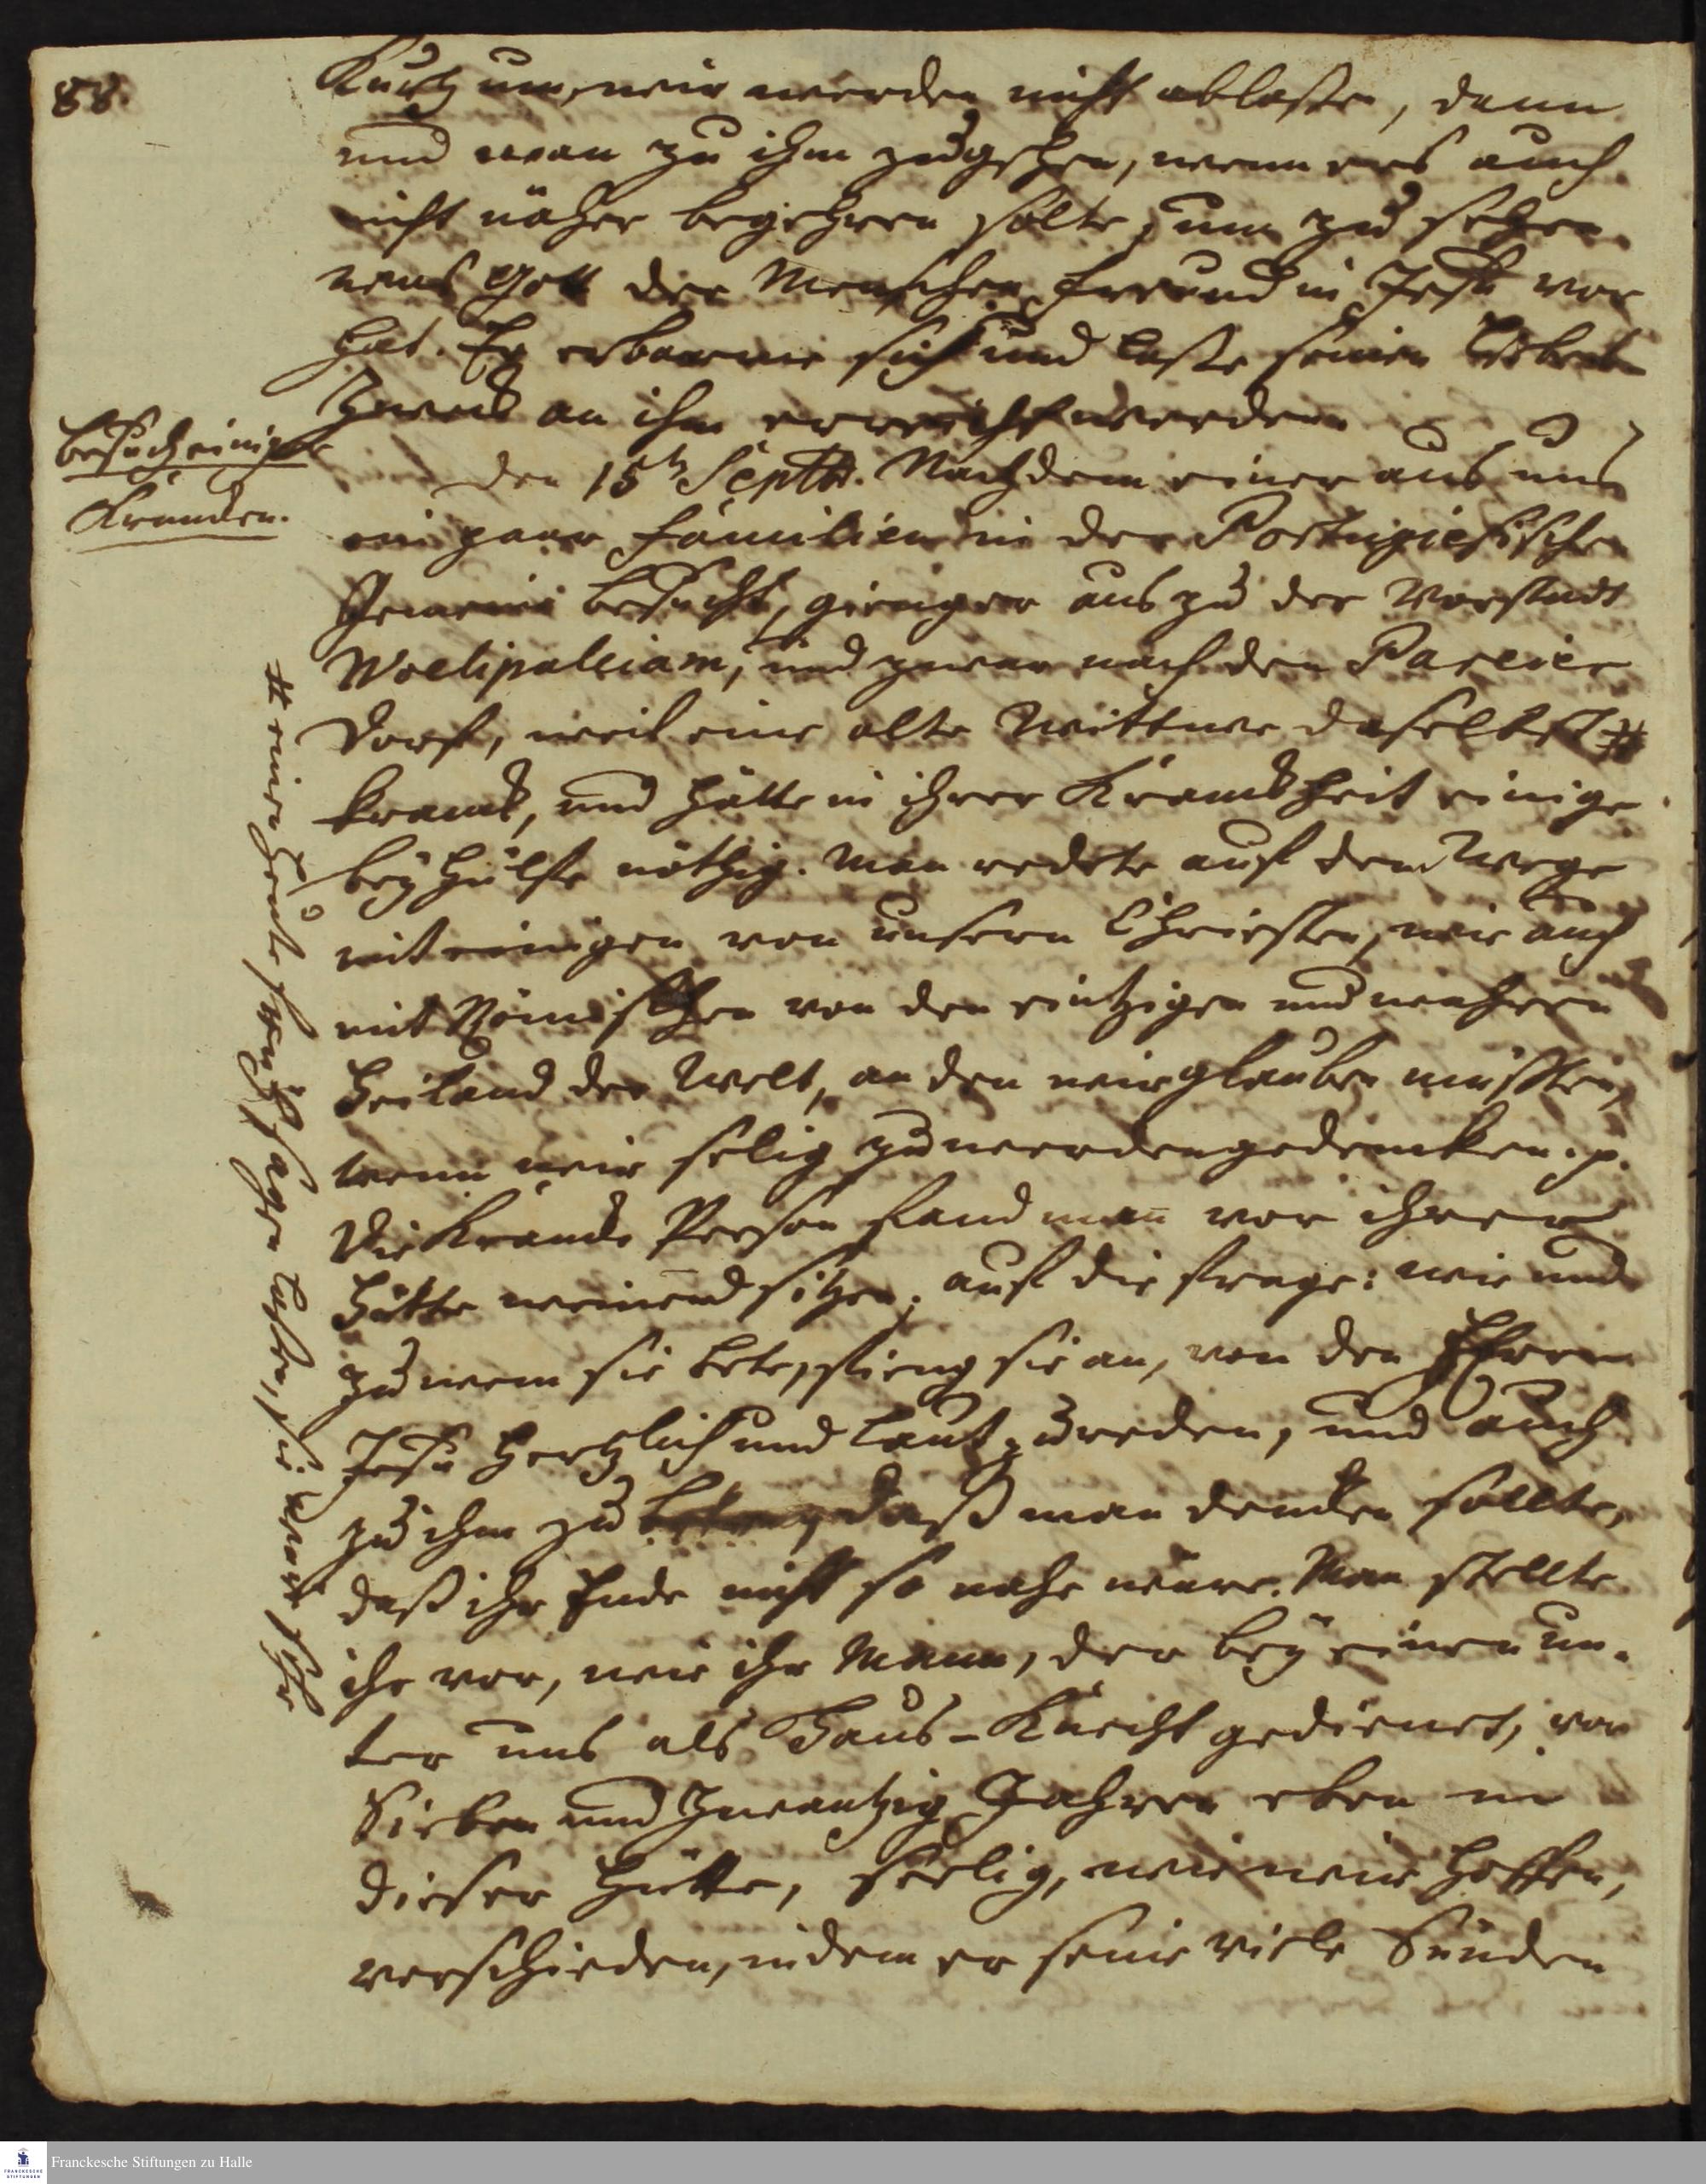 88.
Kurtz um, wir werden nicht ablaßen, dann
und wan zu ihm zugehen, wenn ers auch
nicht näher begehren solte, um zu sehen
was Gott der Menschen Freund in Jesu vor
hat. Er erbarme sich und laße seinen Liebes
Zweck an ihm erreicht werden.
Besuch einiger
Krancken.
den 15t Septbr. Nachdem einer aus uns
ein paar Familien in der Portugiesischen
Gemeine besucht, gienger aus zu der Vorstadt
Woelipaleiam, und zwar nach den Pareier
Dorf, weil eine alte Wittwe daselbst #
kranck, und hätte in ihrer Kranckheit einige
beyhülfe nöthig. Man redete auf dem Wege
mit einigen von unsern Christen, wie auch
mit Römischen von den eintzigen und wahren
Heiland der Welt, an den wir glauben müssten,
wenn wir selig zu werden gedencken. p.
Die Krancke Person fand man vor ihrer
Hütte weinend sitzen; auf die Frage: wie und
zu wem sie bete, fieng sie an, von den HErrn
Jesu hertzlich und laut zu reden, und auch
zu ihm zu beten, daß man dencken sollte,
daß ihr Ende nicht so nahe wäre. Man stellte
ihr vor, wie ihr Mann, der bey einen un-
ter uns als Haus-Knecht gedienet, vor
Sieben und Zwantzig Jahren eben in
dieser Hütte, seelig, wie wir hoffen,
verschieden, indem er seine viele Sünden
# mir heute sagen laßen, sie wäre sehr
Franckesche Stiftungen zu Halle